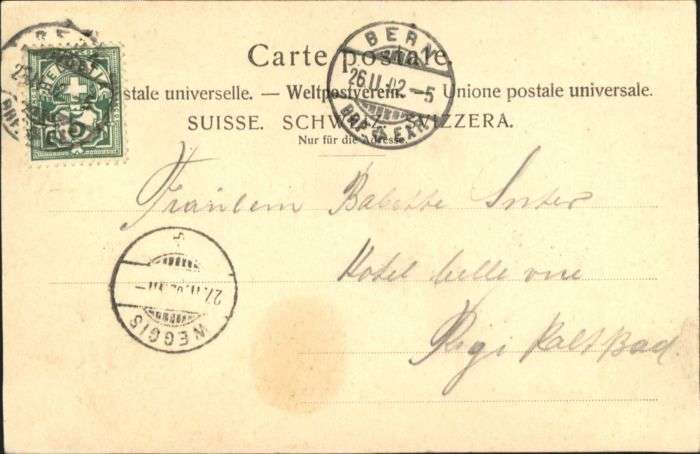 Carte postale.
stale universelle. — Weltpostverein. — Unione postale universale.
SUISSE. SCHWEIZ. SVIZZERA.
Nur für die Adresse.
BERN
26.II.02.-5
BRF. EXP.
HELVETIA
5
Fräulein Babette Suter
Hotel belle vue
Rigi Kalt Bad.
WEGGIS
27.II.02.